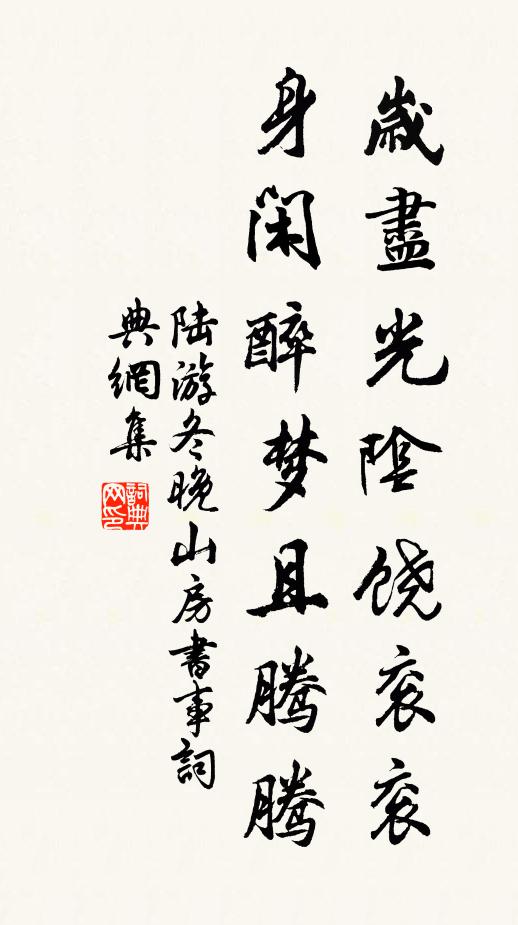 歲盡光陰饶衮衮
身閑醉梦且腾腾
陆游冬晚山房書事詞
典網集
詞典网印